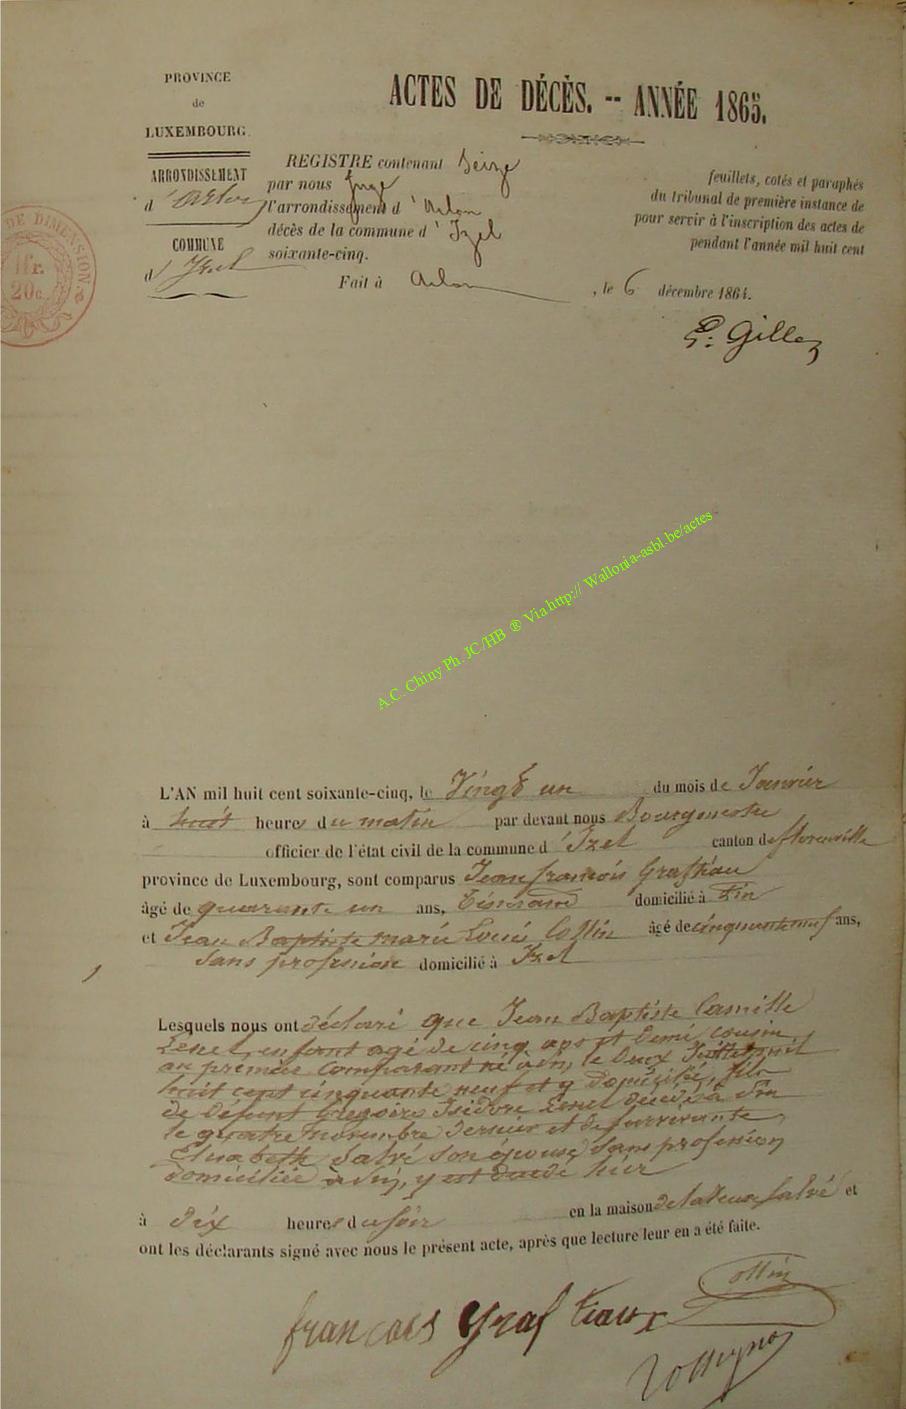 PROVINCE
de
LUXEMBOURG.
ARRONDISSEMENT
d'Arlon
COMMUNE
d'Izel
DE DIMENSION.
1fr.
20c.
ACTES DE DÉCÈS. -- ANNÉE 1865.
REGISTRE contenant Seize feuillets, cotés et paraphés
par nous Juge du tribunal de première instance de
l'arrondissement d'Arlon pour servir à l'inscription des actes de
décès de la commune d'Izel pendant l'année mil huit cent
soixante-cinq.
Fait à Arlon, le 6 décembre 1864.
A.C. Chiny Ph. JC/HB ® Via http:// Wallonia-asbl.be/actes
L'AN mil huit cent soixante-cinq, le Vingt un du mois de Janvier
à huit heures du matin par devant nous Bourgmestre
officier de l'état civil de la commune d'Izel canton de florenville
province de Luxembourg, sont comparus Jean françois Graftiau
âgé de quarante un ans, domicilié à Pin
et Jean Baptiste marie Louis Collin âgé de cinquante neuf ans,
Sans profession domicilié à Izel
1
Lesquels nous ont déclaré que Jean Baptiste Camille
enfant agé de cinq ans et demi cousin
au premier comparant né à Pin, le deux Juillet mil
huit cent cinquante neuf et y domicilié, fils
de defunt Grégoire Isidore décédé à Pin
le quatre novembre dernier et de survivante
Elisabeth Salvé son épouse, Sans profession
domiciliée à Pin, y est décédé hier
à dix heures du soir en la maison de la veuve Salvé et
ont les déclarants signé avec nous le présent acte, après que lecture leur en a été faite.
ollin
francois Graftiaux